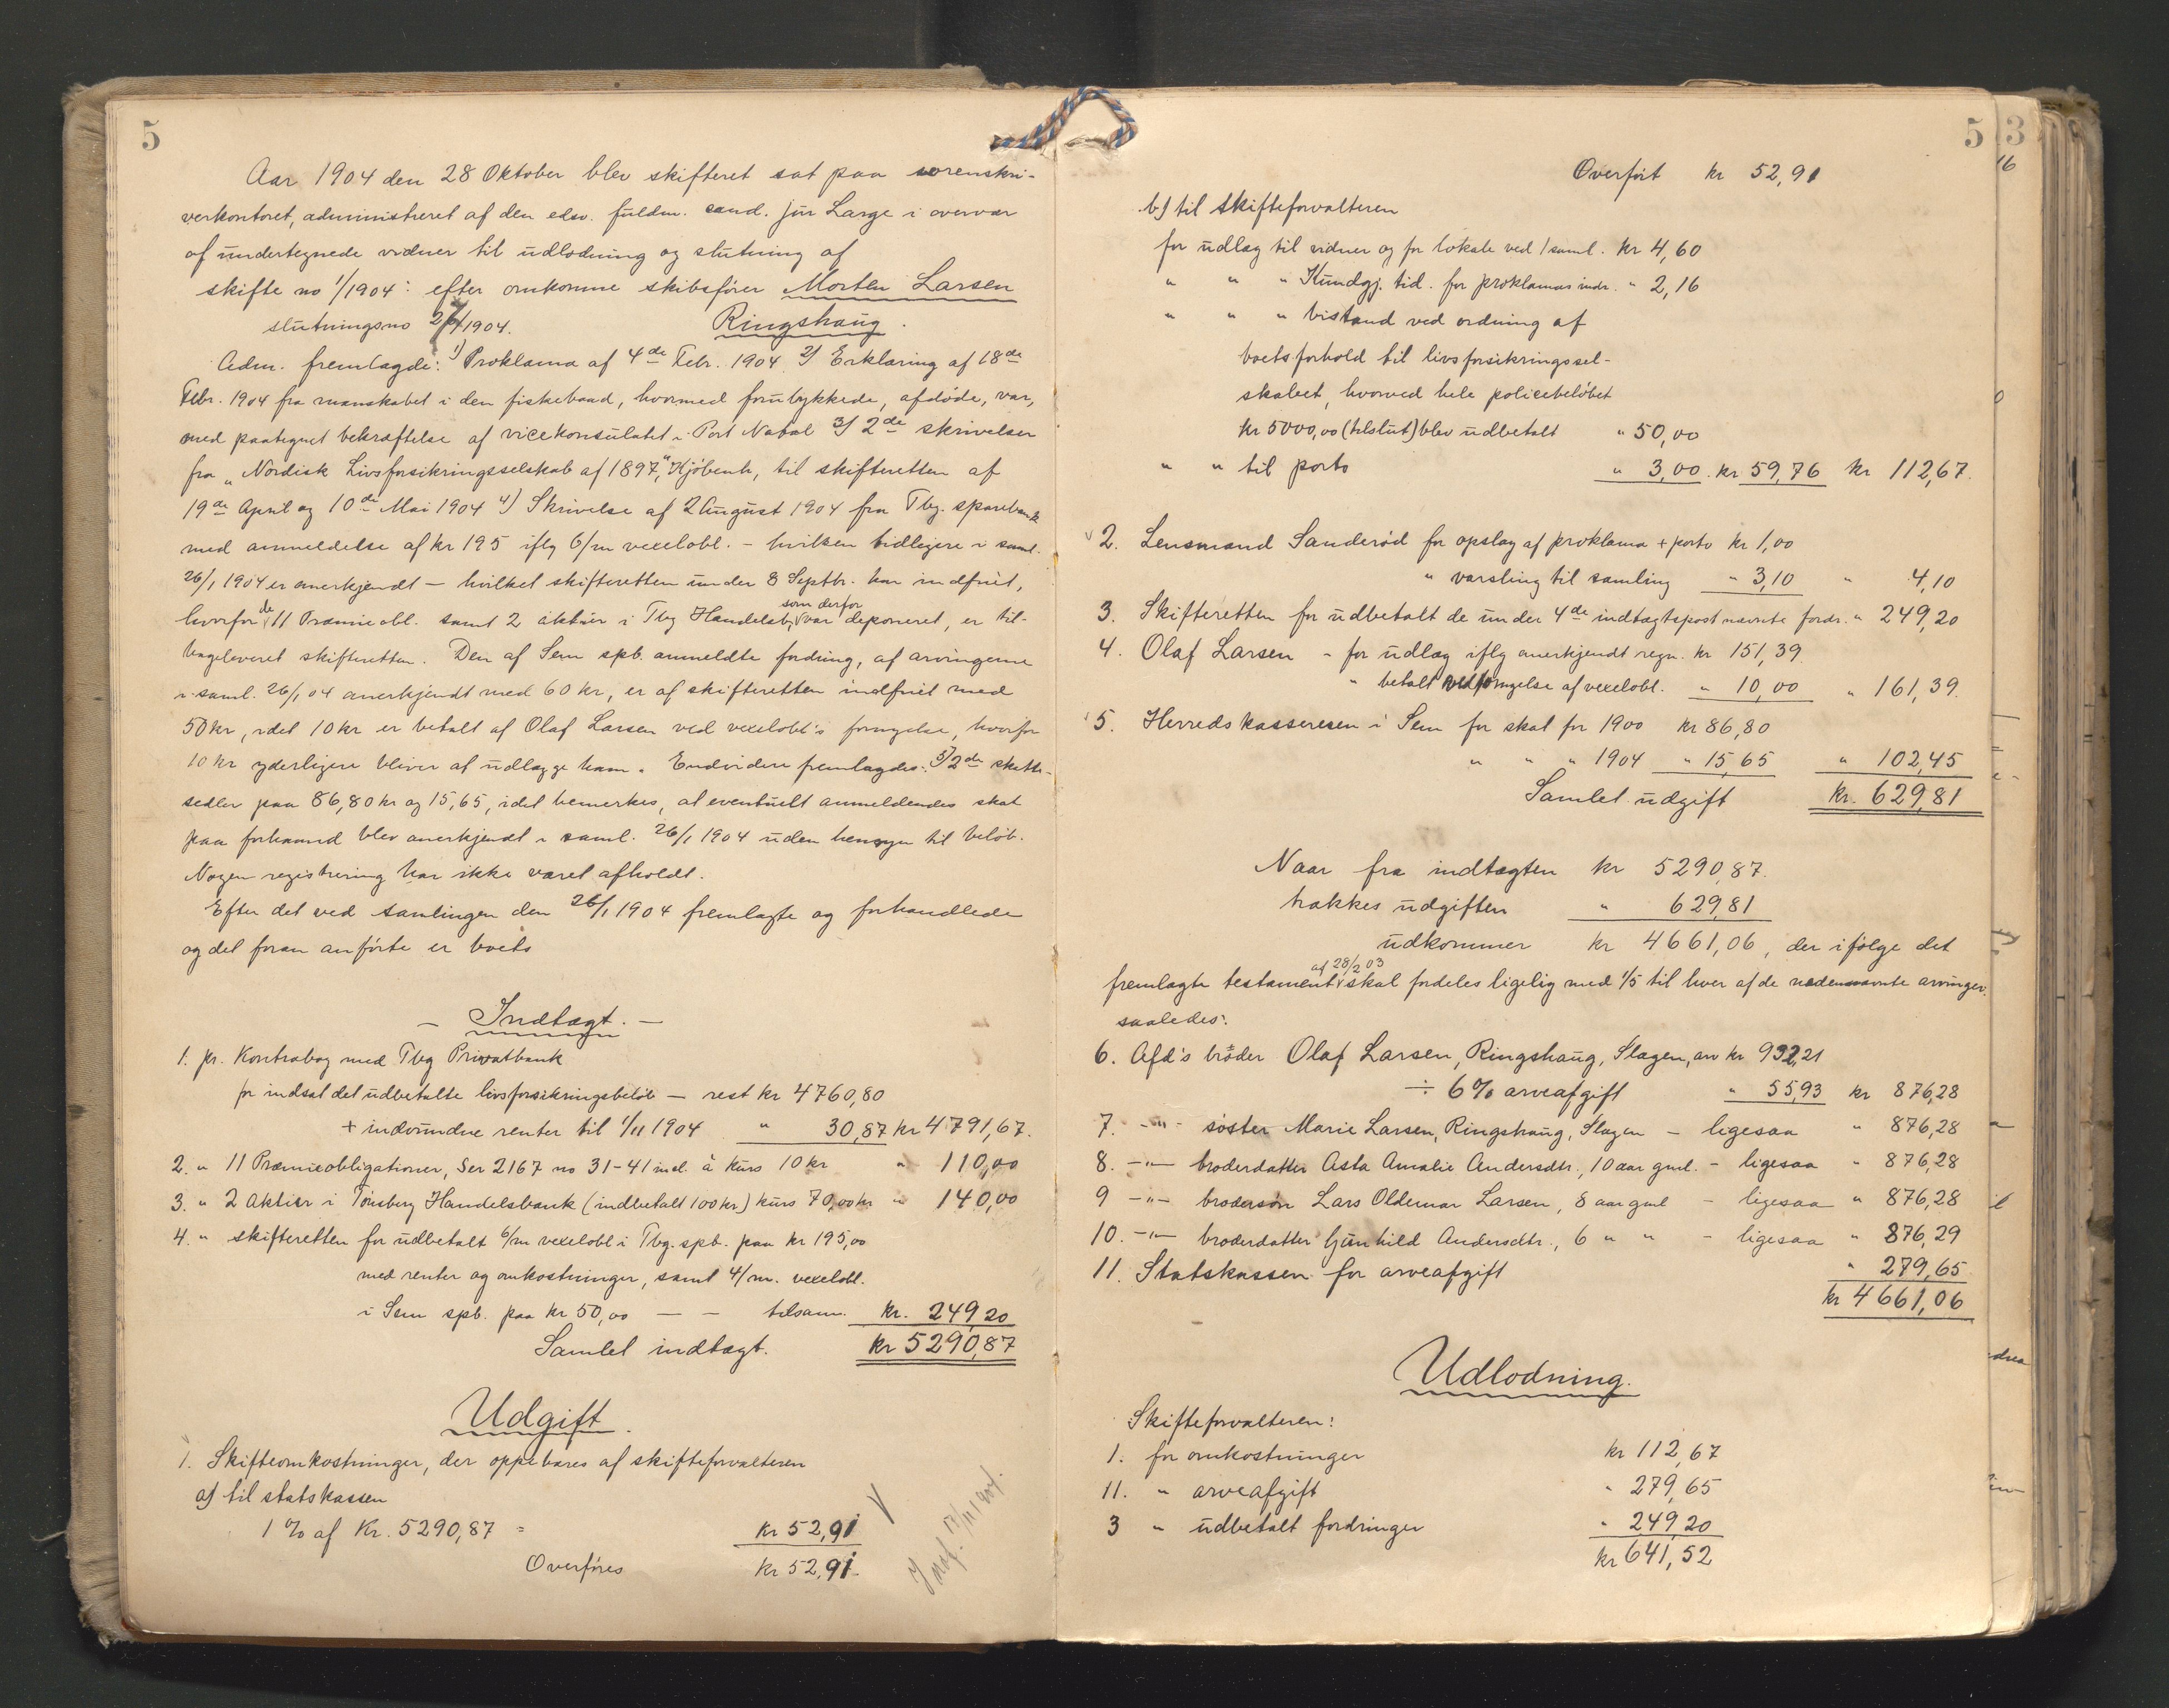 5
Aar 1904 den 28 Oktober blev skifteret sat paa sorenskri-
verkontoret, administreret af den edsv. fuldm. cand. jur Large i overvær
af undertegnede vidner til udlodning og slutning af
skifte no 1/1904: efter omkomne skibsfører Morten Larsen
slutningsno 27/1904. Ringshaug.
Adm. fremlagde: 1) Proklama af 4de Febr. 1904 2) Erklæring af 18de
Febr. 1904 fra manskabet i den fiskebaad, hvormed forulykkede, afdøde, var,
med paategnet bekræftelse af vicekonsulatet i Port Natal 3) 2de skrivelser
fra „Nordisk Livsforsikringsselskab af 1897", Kjøbenh, til skifteretten af
19de April og 10de Mai 1904 4) Skrivelse af 2 August 1904 fra Tbg. sparebank
med anmeldelse af kr 195 iflg 6/m vexelobl. – hvilken tidligere i saml.
26/1 1904 er anerkjendt – hvilket skifteretten under 8 Septbr. har indfriet,
hvorfor de 11 Præmieobl. samt 2 aktier i Tbg Handelsb, som derfor var deponeret, er til-
bageleveret skifteretten. Den af Sem spb. anmeldte fordring, af arvingerne
i saml. 26/1 04 anerkjendt med 60 kr, er af skifteretten indfriet med
50 kr, idet 10 kr er betalt af Olaf Larsen ved vexelobl's fornyelse, hvorfor
10 kr yderligere bliver at udlægge ham. Endvidere fremlagdes: 5) 2de skatte-
sedler paa 86,80 kr og 15,65, idet bemerkes, at eventuelt anmeldendes skat
paa forhaand blev anerkjendt i saml. 26/1 1904 uden hensyn til beløb.
Nogen registrering har ikke været afholdt.
Efter det ved samlingen den 26/1 1904 fremlagte og forhandlede
og det foran anførte er boets
– Indtægt. –
1. pr. Kontrabog med Tbg Privatbank
for indsat det udbetalte livsforsikringsbeløb – rest kr 4760,80
+ indvundne renter til 1/11 1904 " 30,87 kr 4791,67.
2. " 11 Præmieobligationer, Ser 2167 no 31-41 incl. à kurs 10 kr " 110,00
3. " 2 Aktier i Tønsberg Handelsbank (indbetalt 100 kr) kurs 70,00 kr " 140,00
4. " skifteretten for udbetalt 6/m vexelobl i Tbg. spb. paa kr 195,00
med renter og omkostninger, samt 4/m. vexelobl.
i Sem spb. paa kr 50,00 – – tilsam. kr. 249,20
Samlet indtægt. kr 5290,87
Udgift.
1. Skifteomkostninger, der oppebæres af skifteforvalteren
a) til statskassen
1 % af Kr. 5290,87 = kr 52,91
Overføres kr 52,91
5
Overført kr 52,91
b) til skifteforvalteren
for udlæg til vidner og for lokale ved 1 saml. kr 4,60
" " " Kundgj. tid. for proklamas indr. " 2,16
" " " bistand ved ordning af
boets forhold til livsforsikringssel-
skabet, hvorved hele policebeløbet
kr 5000,00 (tilslut) blev udbetalt " 50,00
" " til porto " 3,00. kr 59,76 kr 112,67.
2. Lensmand Sanderød for opslag af proklama + porto kr 1,00
" varsling til samling " 3,10 " 4,10
3. Skifteretten for udbetalt de under 4de indtægtspost nævnte fordr. " 249,20
4. Olaf Larsen – for udlæg iflg anerkjendt regn. kr 151,39.
" betalt ved fornyelse af vexelobl. " 10,00 " 161,39.
5. Herredskassereren i Sem for skat for 1900 kr 86,80
" " " 1904 " 15,65 " 102,45
Samlet udgift kr. 629,81
Naar fra indtægten kr 5290,87.
trækkes udgiften " 629,81
udkommer kr 4661,06, der ifølge det
fremlagte testament af 28/2 03 skal fordeles ligelig med 1/5 til hver af de nedennævnte arvinger.
saaledes:
6. Afd's broder Olaf Larsen, Ringshaug, Slagen, arv kr 932,21
÷ 6 % arveafgift " 55,93 kr 876,28
7. –"– søster Marie Larsen, Ringshaug, Slagen – ligesaa " 876,28
8. –"– broderdatter Asta Amalie Andersdtr., 10 aar gml. – ligesaa " 876,28
9 –"– brodersøn Lars Oldemar Larsen, 8 aar gml – ligesaa " 876,28
10. –"– broderdatter Gunhild Andersdtr., 6 " " – ligesaa " 876,29
11. Statskassen for arveafgift " 279,65
kr 4661,06
Udlodning.
Skifteforvalteren:
1. for omkostninger kr 112,67
11. " arveafgift " 279,65
3 " udbetalt fordringer " 249,20
kr 641,52